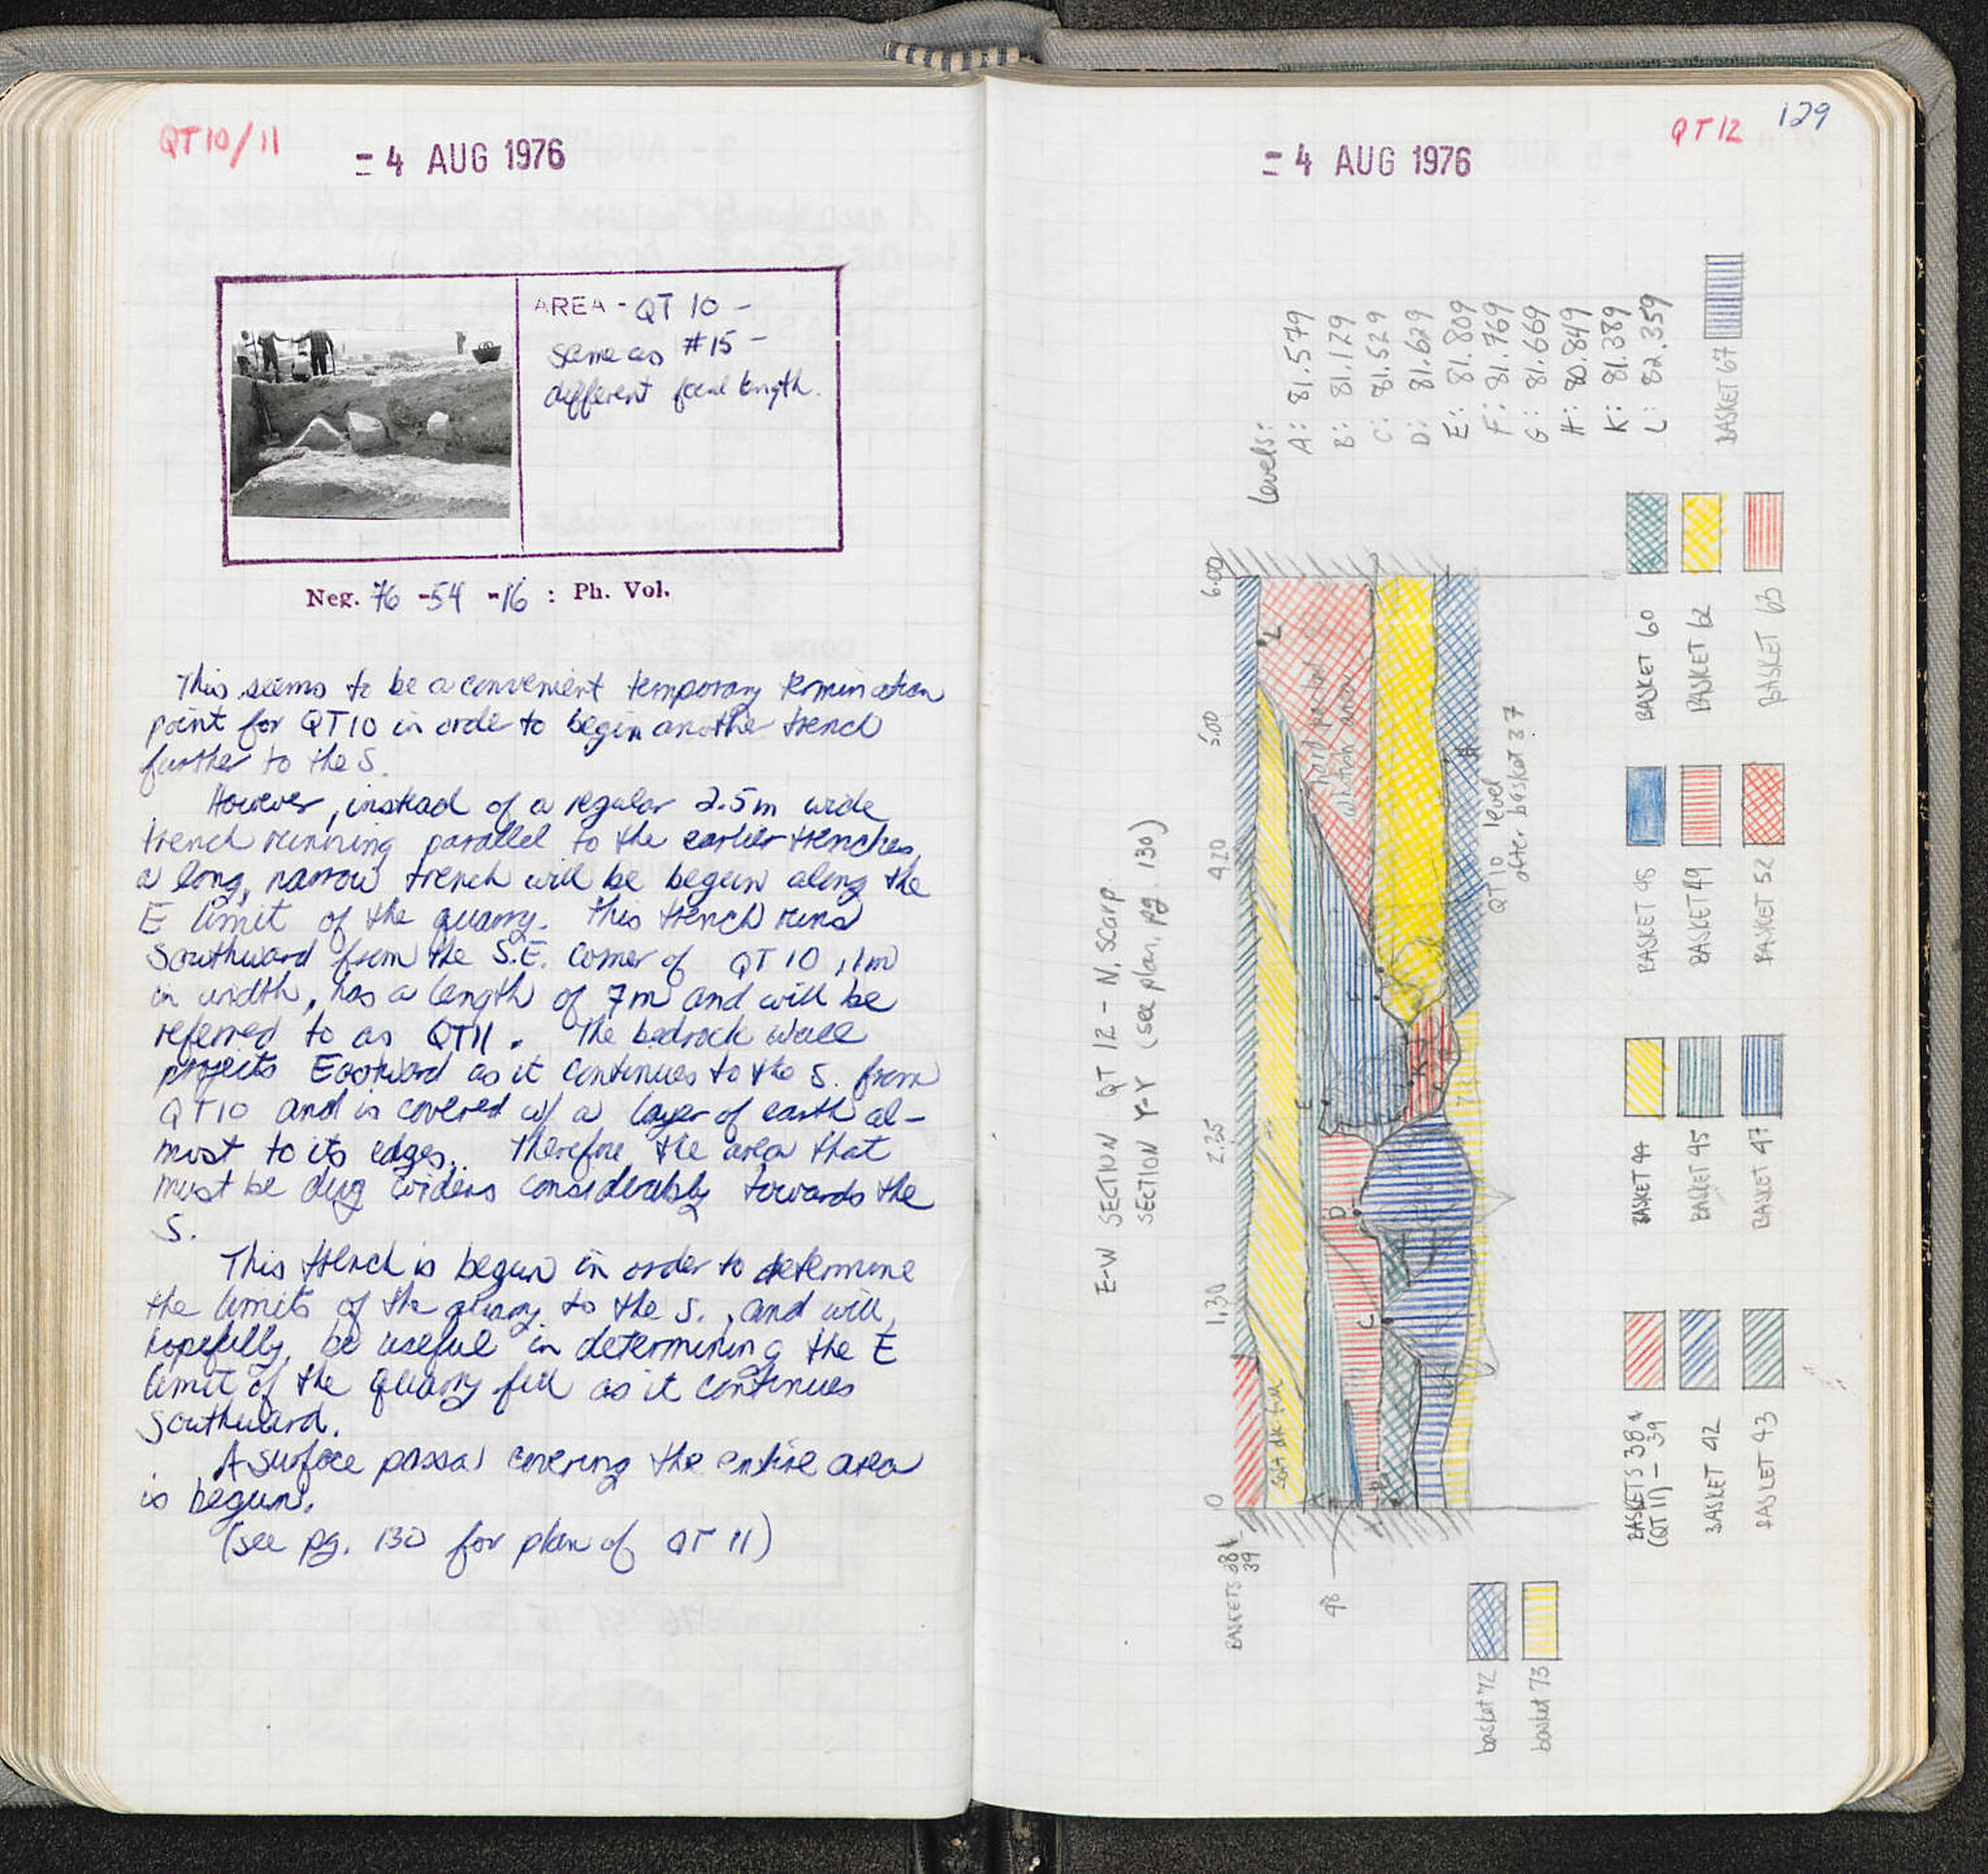 QT 10/11
= 4 AUG 1976
AREA - QT 10 -
same as #15 -
different focal length.
Neg. 76 -54 -16 : Ph. Vol.
This seems to be a convenient temporary termination
point for QT10 in orde to begin another trench
further to the S.
However, instead of a regular 2.5m wide
trench running parallel to the earlier trenches,
a long, narrow trench will be begun along the
E limit of the quarry. This trench runs
Southward from the S.E. corner of QT 10, 1m
in width, has a length of 7m and will be
referred to as QT11. The bedrock wall
projects Eastward as it continues to the S. from
QT10 and is covered w/ a layer of earth al-
most to its edges. Therefore the area that
must be dug widens considerably towards the
S.
This trench is begun in order to determine
the limits of the quarry to the S., and will,
hopefully, be useful in determining the E
limit of the Quarry fill as it continues
Southward.
A surface passa covering the entire area
is begun.
(see pg. 130 for plan of QT 11)
129
QT 12
= 4 AUG 1976
E-W SECTION QT 12 - N. scarp
SECTION Y-Y (see plan, pg. 130)
0
1.30
2.35
4.20
5.00
6.00
BASKETS 38+
39
48
soft dk
hard packed
QT 10 level
after basket 37
A
C
D
E
F
H
K
L
levels:
A: 81.579
B: 81.129
C: 81.529
D: 81.629
E: 81.809
F: 81.769
G: 81.669
H: 80.849
K: 81.389
L: 82.359
BASKETS 38 +
(QT 11) - 39
BASKET 42
BASKET 43
BASKET 44
BASKET 45
BASKET 47
BASKET 48
BASKET 49
BASKET 52
BASKET 60
BASKET 62
BASKET 63
BASKET 67
basket 72
basket 73